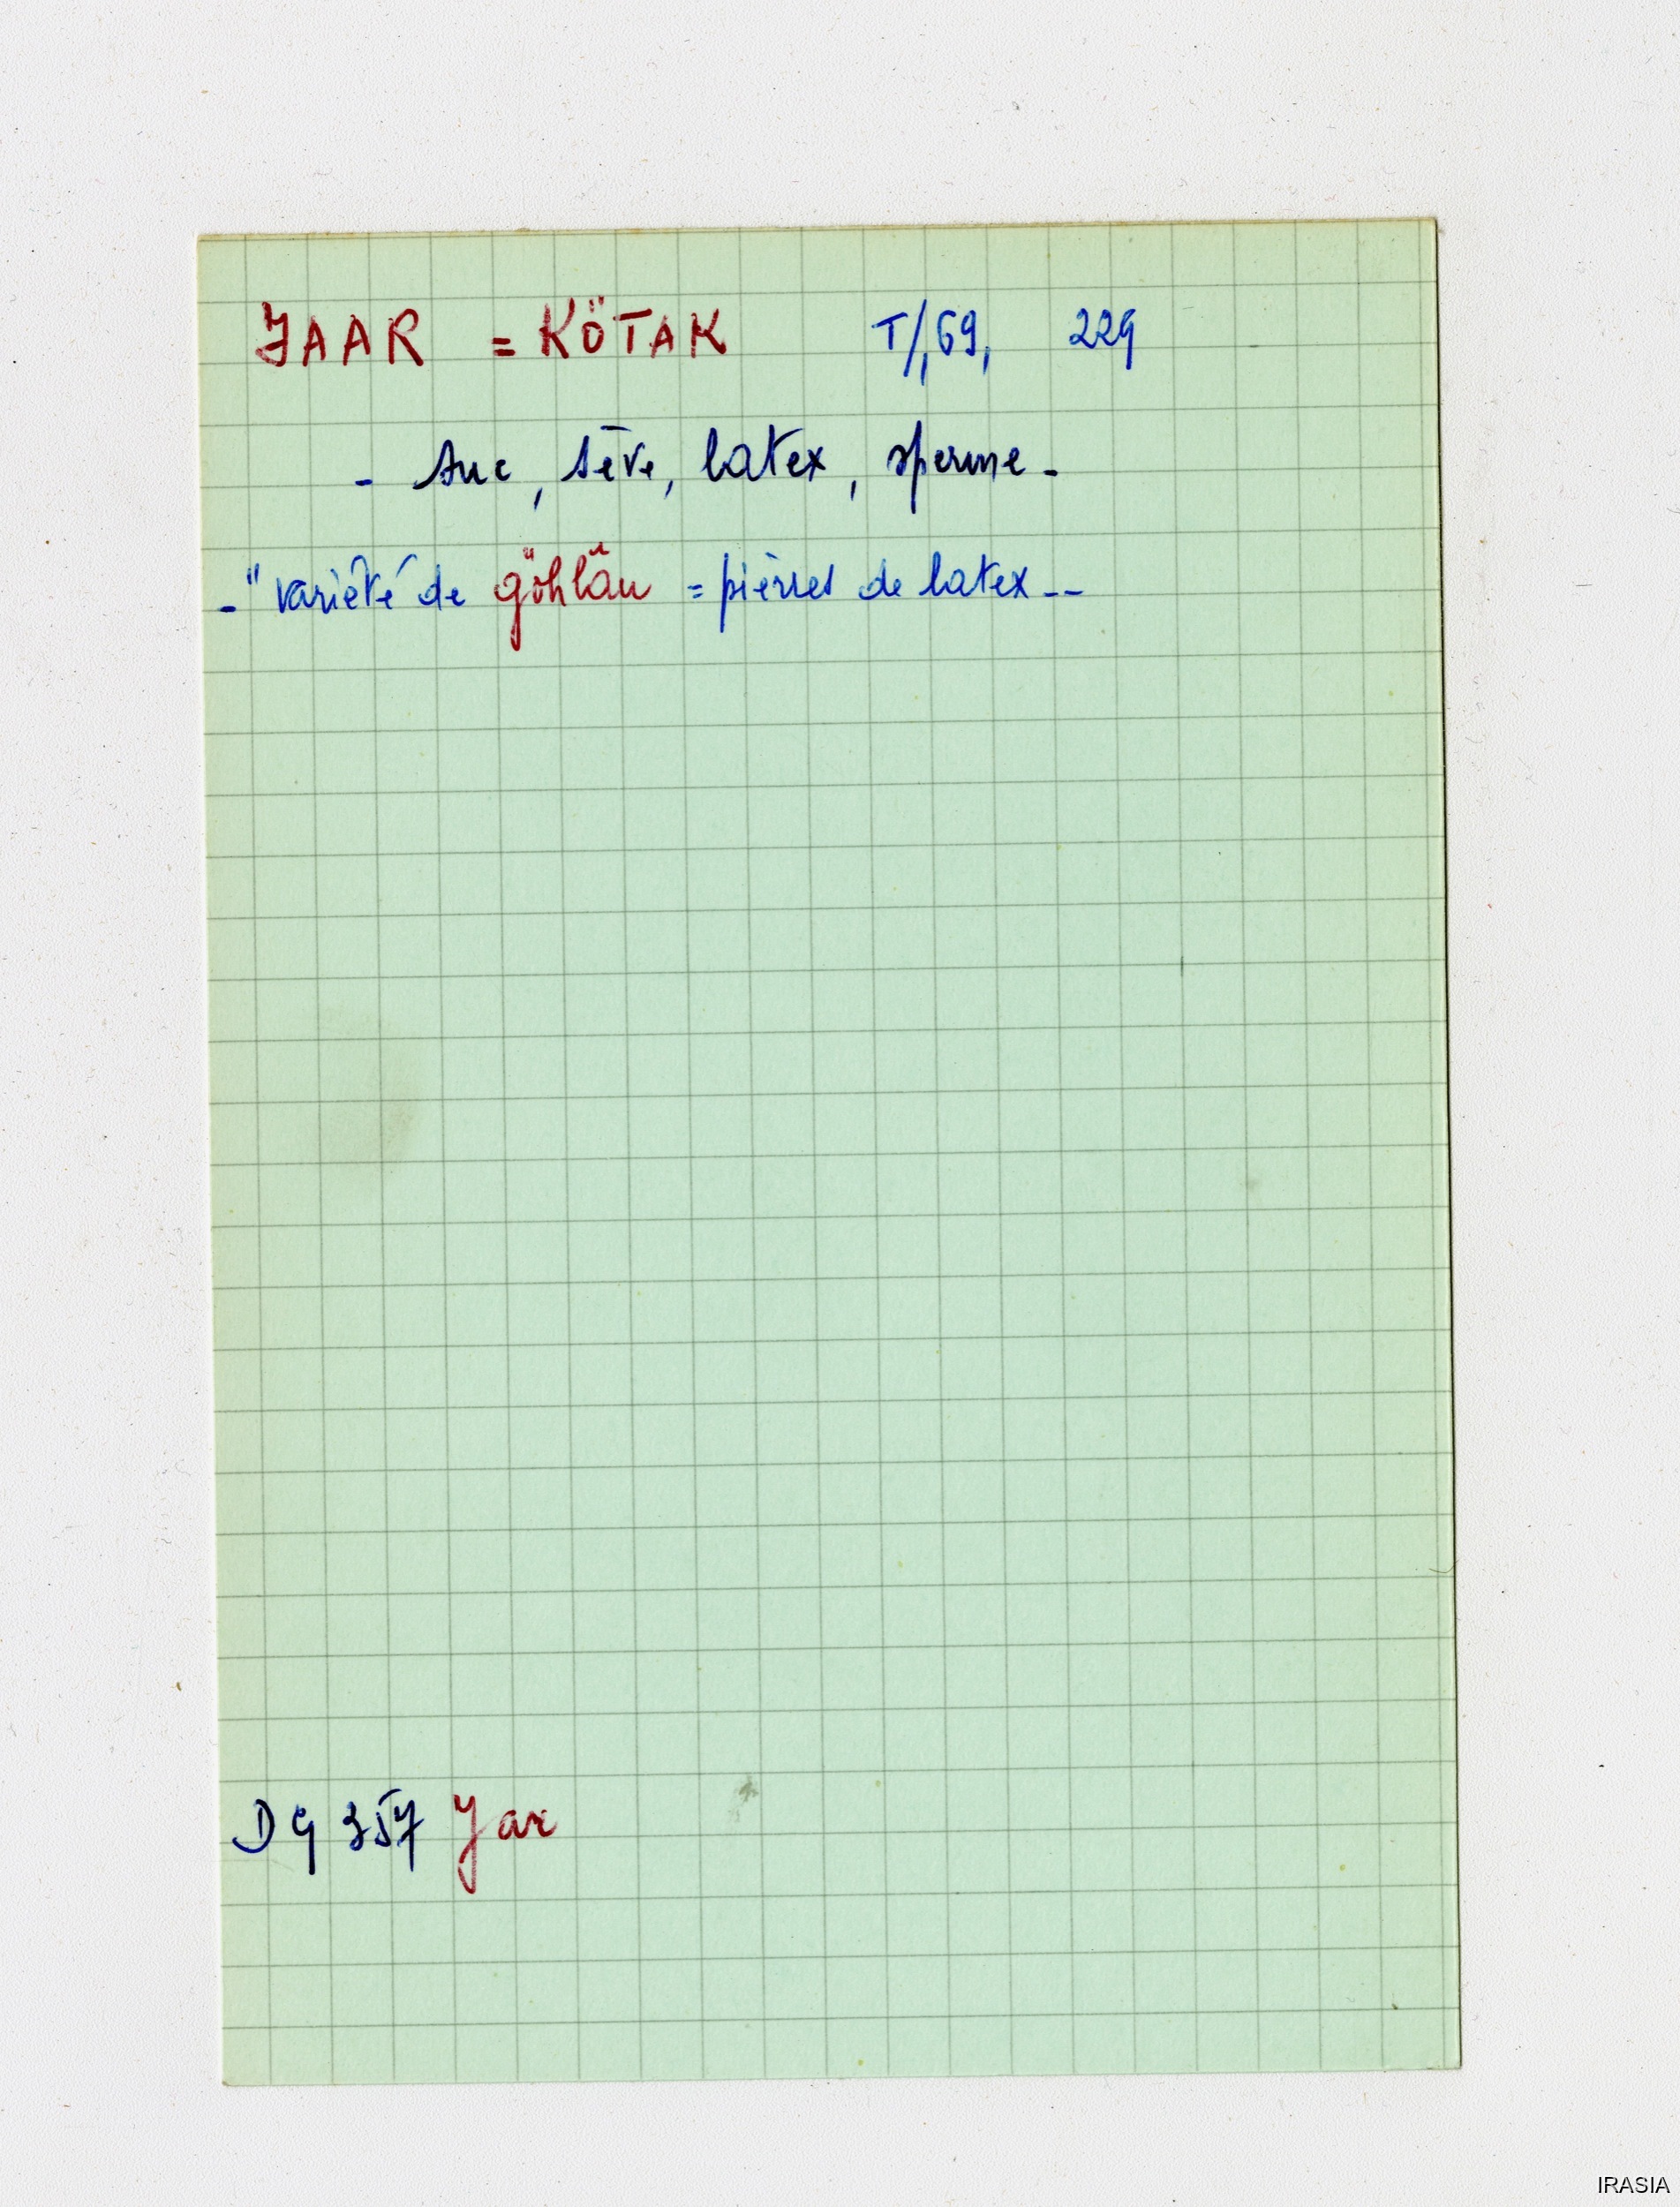 JAAR = KÖTAK T/,69, 229
- suc, sève, latex, sperme -
- " variété de göhlău = pièrres de latex --
DG 357 Jar
IRASIA